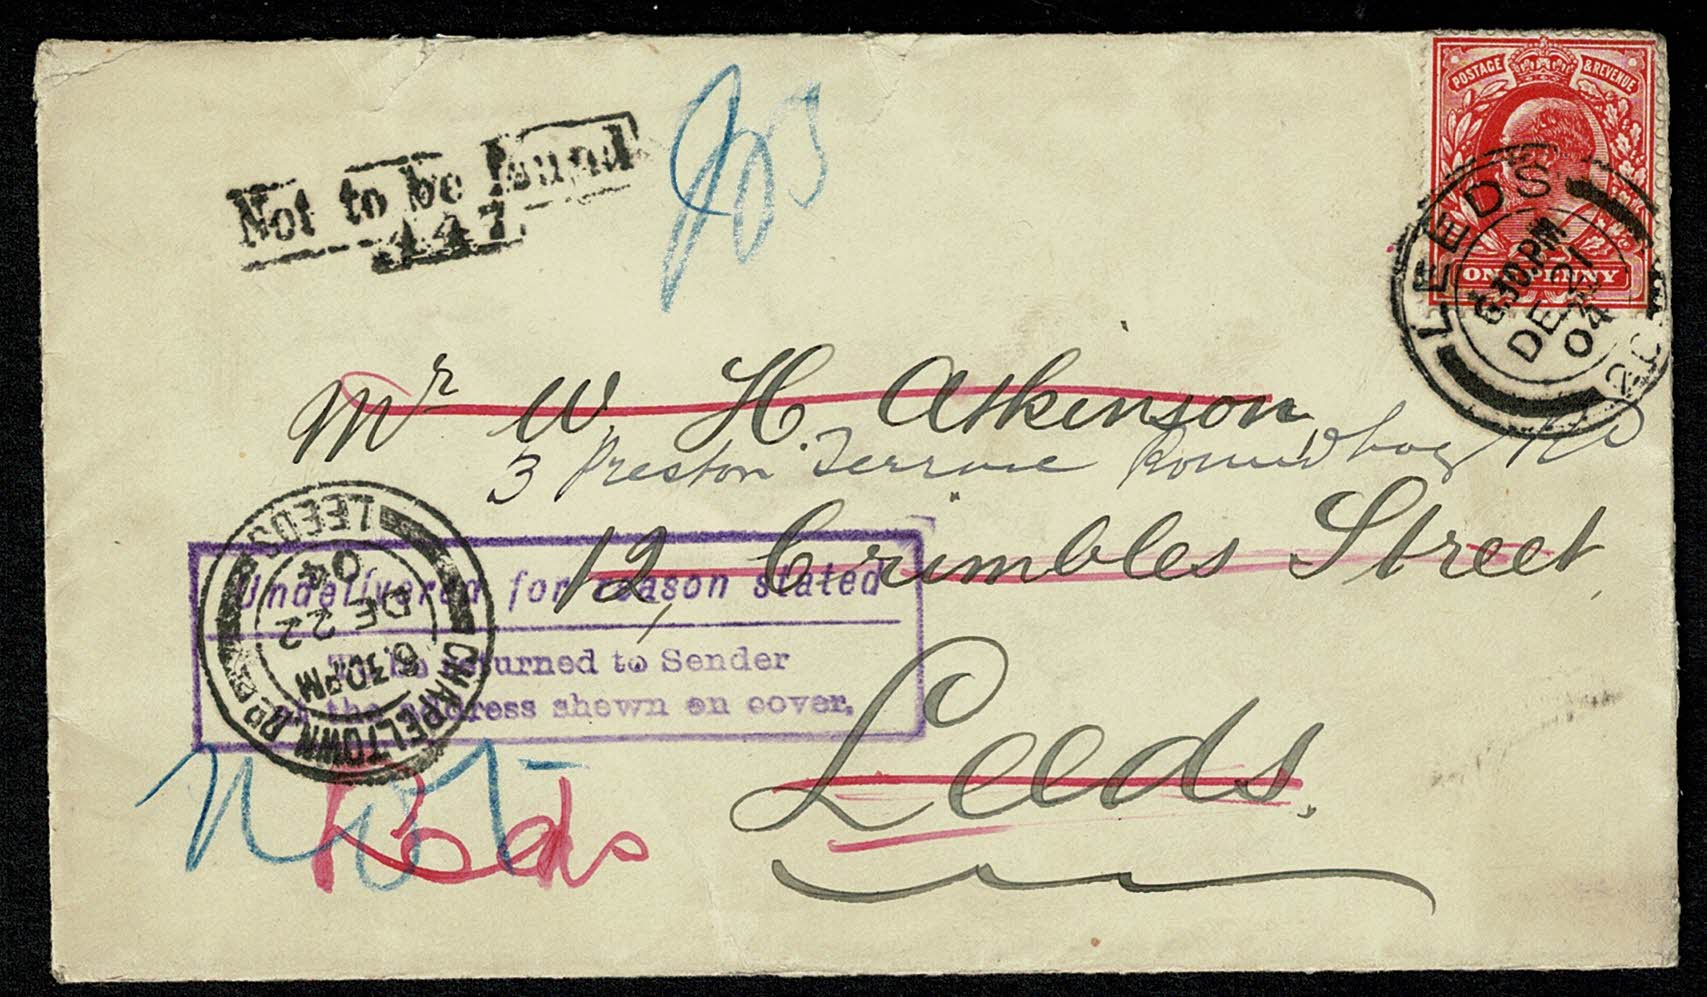 POSTAGE & REVENUE
ONE PENNY
LEEDS
6.30 PM
DE 21
04
Not to be found
447
Mr W. H. Atkinson
3 Preston Terrace Roundhay Rd
12, Crimbles Street
Leeds.
LEEDS
CHAPELTOWN RD
6.30 PM
DE 22
04
Undelivered for reason stated
To be returned to Sender
at the address shewn on cover.